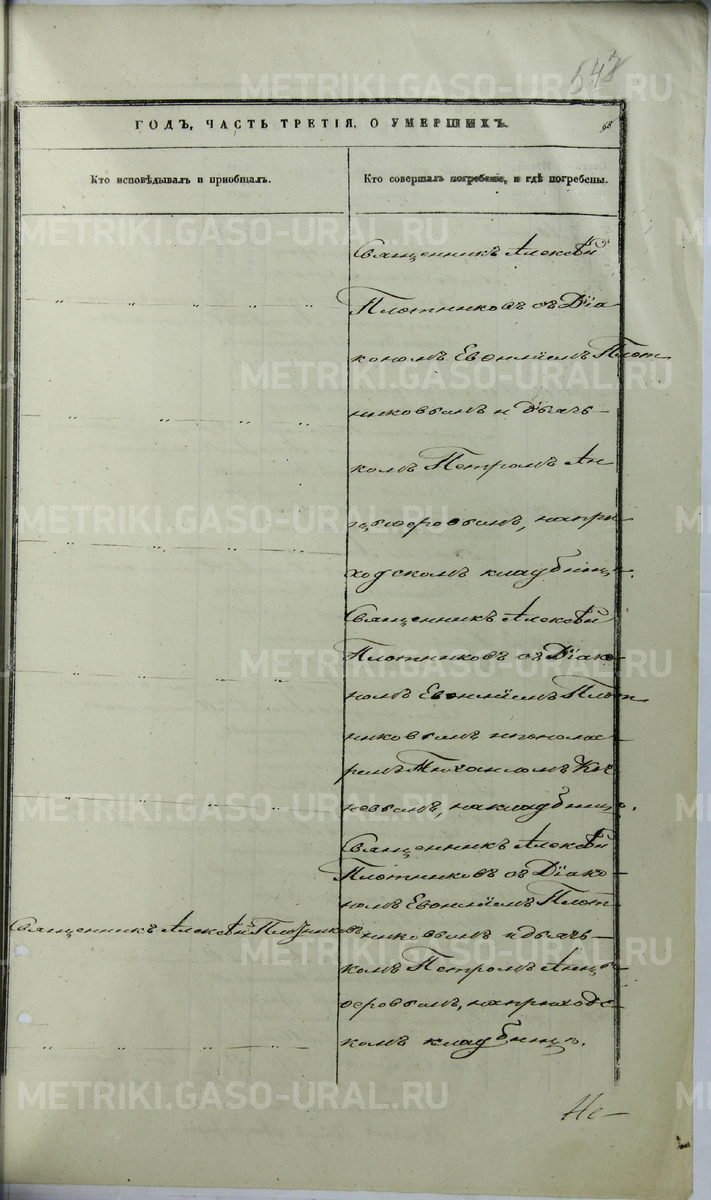 543
ГОДЪ, ЧАСТЬ ТРЕТІЯ, О УМЕРШИХЪ.
68
Кто исповѣдывалъ и пріобщалъ.
Кто совершалъ погребеніе, и гдѣ погребены.
Священникъ Алексѣй
Плотниковъ съ Діа
кономъ Евѳиміемъ Плот
никовымъ и Дьяч-
комъ Петромъ Ан
цыферовымъ, на при
ходскомъ кладбищѣ.
Священникъ Алексѣй
Плотниковъ съ Діако
номъ Евѳиміемъ Плот
никовымъ и понома
ремъ Михаиломъ
на кладбищѣ.
Священникъ Алексѣй
Плотниковъ съ Діако-
номъ Евѳиміемъ Плот
Священникъ Алексѣй Плотниковъ
никовымъ и дьяч-
комъ Петромъ Анцы
феровымъ, на приходс
комъ кладбищѣ.
Не-
METRIKI.GASO-URAL.RU